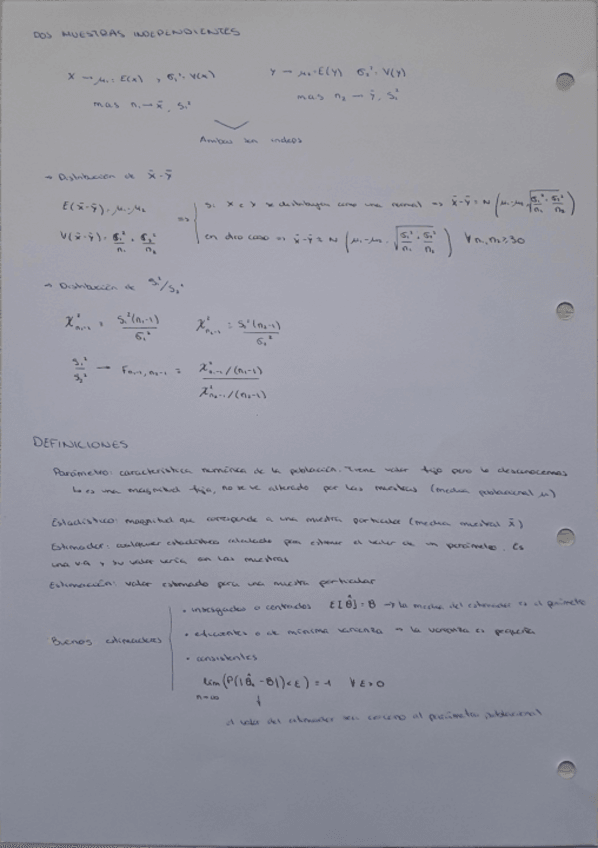 DOS MUESTRAS INDEPENDIENTES
X → μ₁ = E(X) , σ₁² = V(X)    Y → μ₂ = E(Y)  σ₂² = V(Y)
mas n₁ → x̄, S₁²    mas n₂ → ȳ, S₂²
Ambas son indeps
→ Distribución de x̄-ȳ
E(x̄-ȳ) = μ₁-μ₂    si X e Y se distribuyen como una normal ⇒ x̄-ȳ ≈ N(μ₁-μ₂, √(σ₁²/n₁ + σ₂²/n₂))
V(x̄-ȳ) = σ₁²/n₁ + σ₂²/n₂  ⇒  en otro caso ⇒ x̄-ȳ ≈ N(μ₁-μ₂, √(σ₁²/n₁ + σ₂²/n₂))  ∀ n₁,n₂ ≥ 30
→ Distribución de S₁²/S₂²
χ²ₙ₁₋₁ = S₁²(n₁-1)/σ₁²    χ²ₙ₂₋₁ = S₂²(n₂-1)/σ₂²
S₁²/S₂² → Fₙ₁₋₁,ₙ₂₋₁ = (χ²ₙ₁₋₁/(n₁-1)) / (χ²ₙ₂₋₁/(n₂-1))
DEFINICIONES
Parámetro: característica numérica de la población. Tiene valor fijo pero lo desconocemos
↳ es una magnitud fija, no se ve alterado por las muestras (media poblacional μ)
Estadístico: magnitud que corresponde a una muestra particular (media muestral x̄)
Estimador: cualquier estadístico calculado para estimar el valor de un parámetro. Es
una v.a y su valor varía con las muestras
Estimación: valor estimado para una muestra particular
· insesgados o centrados  E[θ̂] = θ → la media del estimador es el parámetro
Buenos estimadores  · eficientes o de mínima varianza → la varianza es pequeña
· consistentes
lim (P(|θ̂ - θ|) < ε) = 1  ∀ ε > 0
n→∞
el valor del estimador será cercano al parámetro poblacional